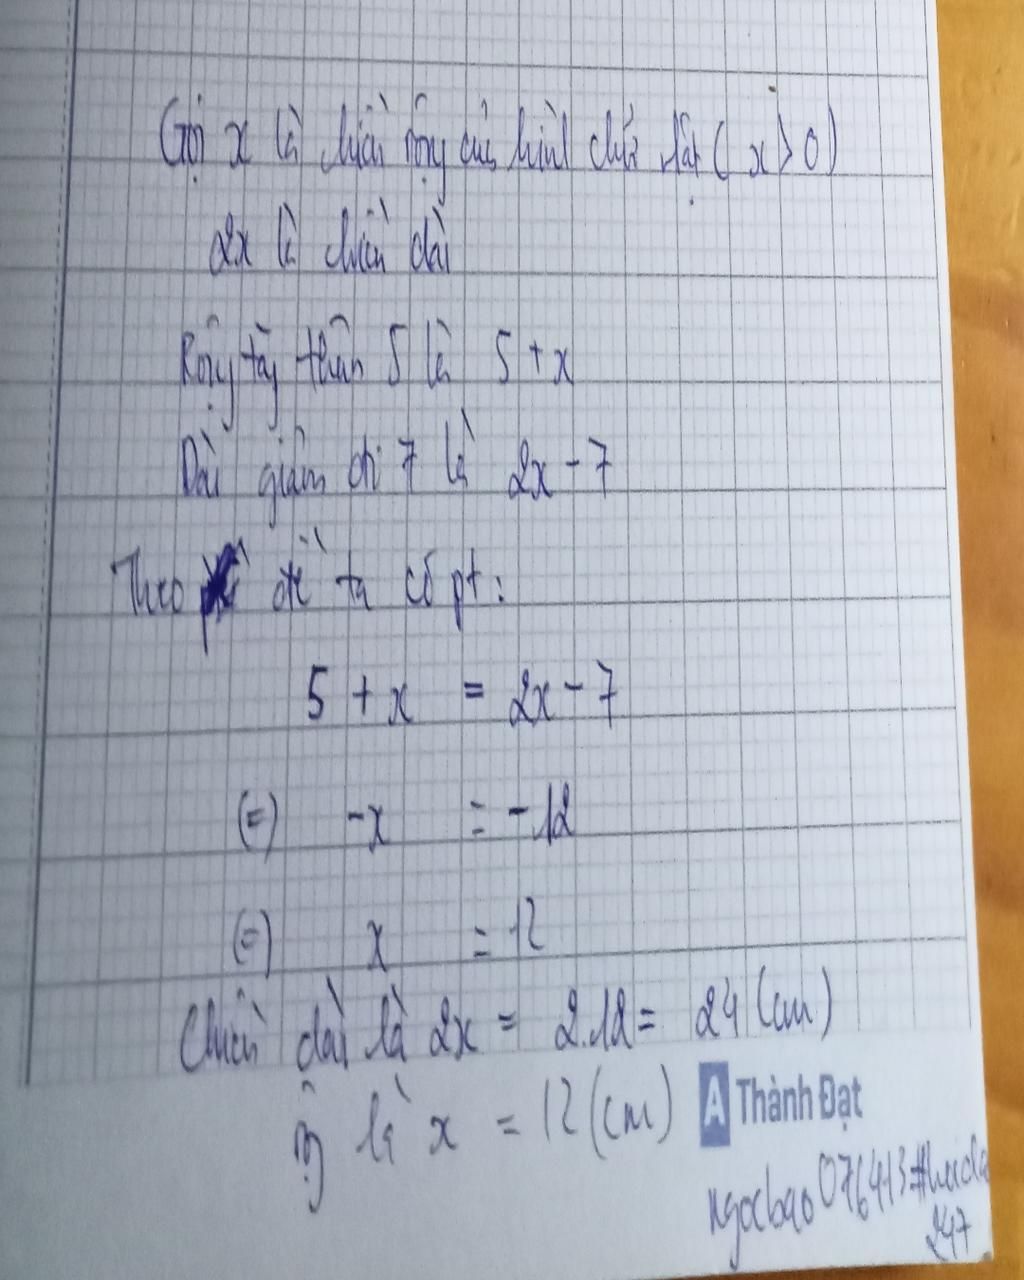 Gọi x là chiều rộng của hình chữ nhật ( x > 0 )
2x là chiều dài
Rộng tăng thêm 5 là 5 + x
Dài giảm đi 7 là 2x - 7
Theo đề ta có pt :
5 + x = 2x - 7
(=) -x = -12
(=) x = 12
Chiều dài là 2x = 2.12 = 24 (cm)
rộng là x = 12 (cm)
A Thành Đạt
247